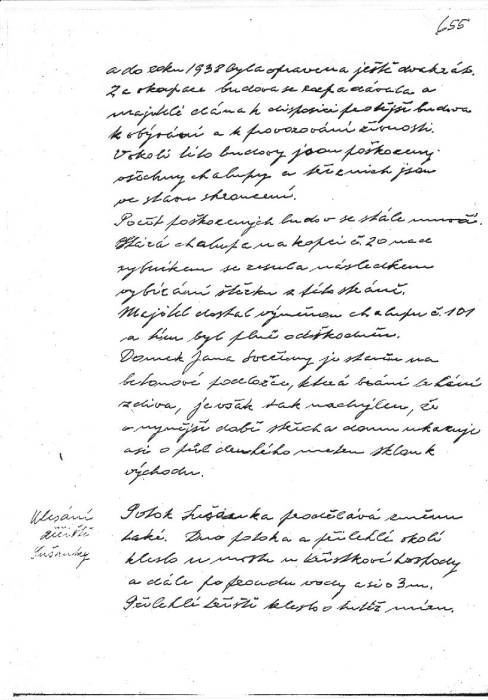 655
a do roku 1938 byla opravena ještě dvakrát.
Za okupace budova se rozpadávala a
majitelé dána k disposici protější budova
k obývání a k provozování živnosti.
V okolí této budovy jsou poškozeny
všechny chalupy a některé jsou
ve stavu
Počet poškozených budov se stále množí.
Stará chalupa na kopci č. 20 nad
rybníkem se sesula následkem
vybírání štěrku z této stráně.
Majitel dostal výměnou chalupu č. 101
a tím byl plně odškodněn.
Domek Jana Svěčiny je stavěn na
betonové podložce, která brání trhání
zdiva, je však tak nachýlen, že
v nynější době střecha domu ukazuje
asi o půl druhého metru sklon k
východu.
Klesání
řečiště
Sušanky
Potok Sušanka prodělává změnu
také. Dno potoka a přilehlé okolí
kleslo u mostu u hospody
a dále po proudu vody asi o 3 m.
Přilehlé kleslo o tutéž míru.